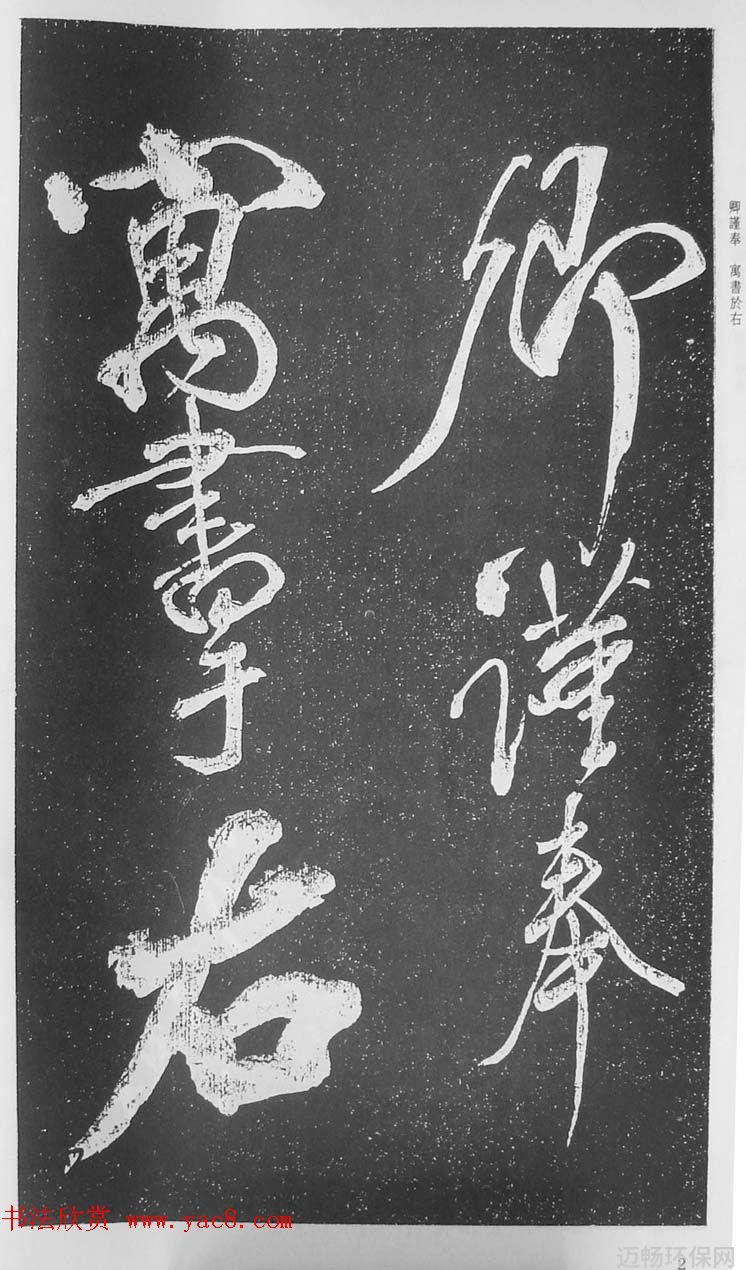 卿謹奉
寓書于右
卿謹奉 寓書於右
书法欣赏 www.yac8.com
2
迈畅环保网